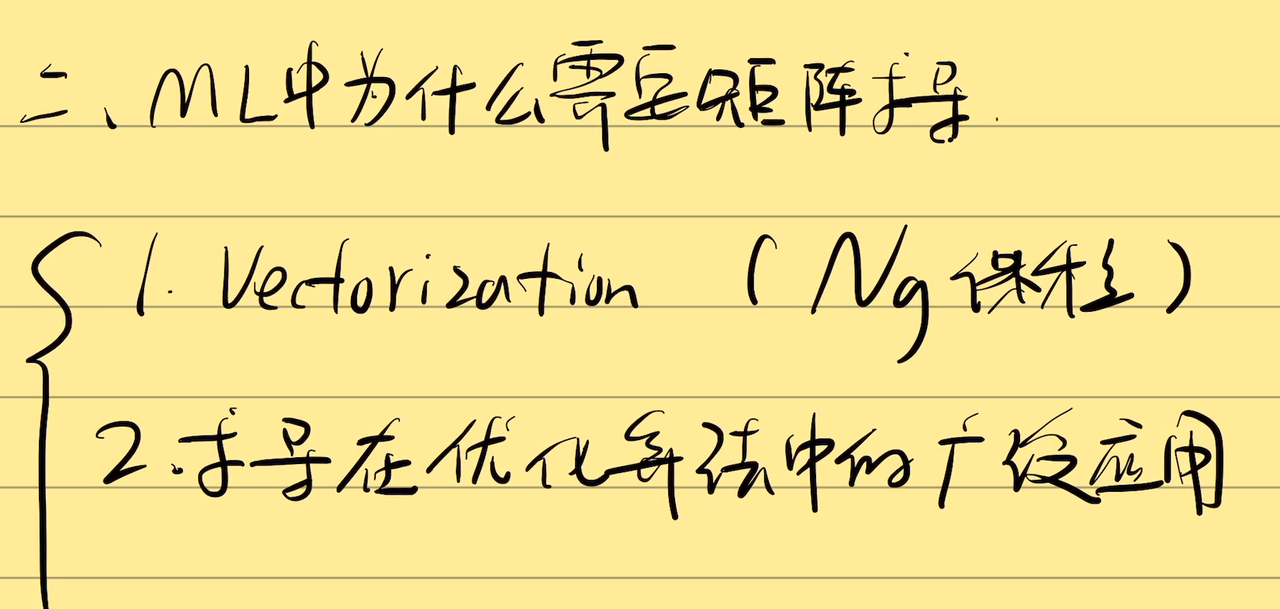 二、ML中为什么需要矩阵求导
1. Vectorization (Ng 课程)
2.求导在优化算法中的广泛应用